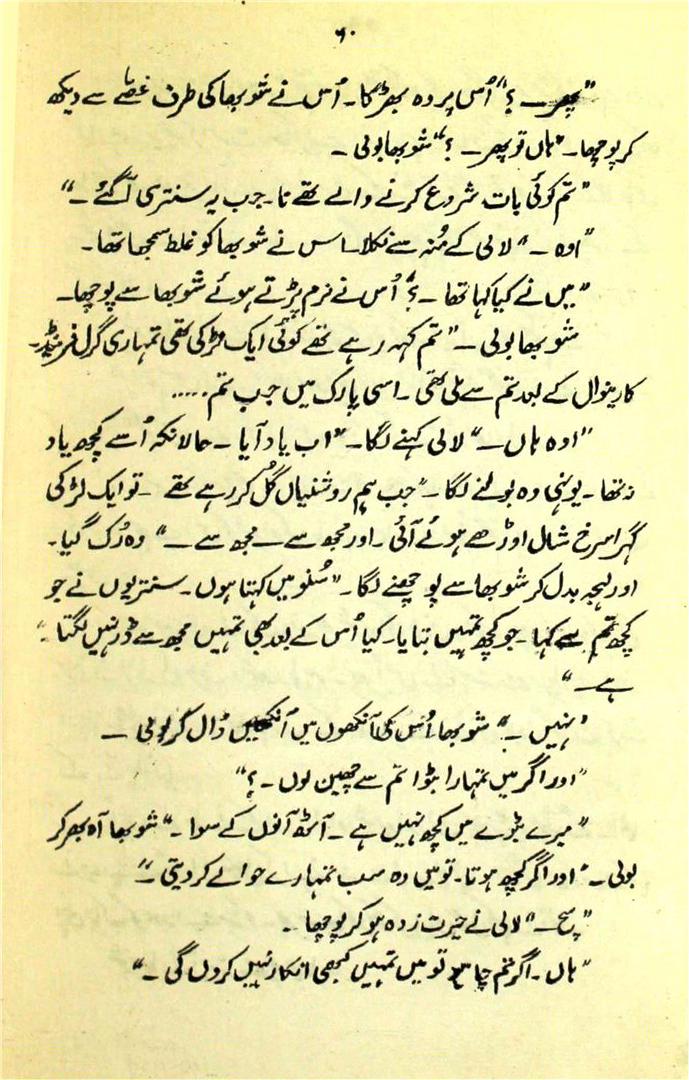 ۶۰
"پھر۔؟" اُس پر وہ بھڑکا۔ اُس نے شوبھا کی طرف غصّے سے دیکھ
کر پوچھا۔ "ہاں تو پھر۔ ؟" شوبھا بولی۔
"تم کوئی بات شروع کرنے والے تھے نا۔ جب یہ سنتری آ گئے۔"
"اوہ۔" لالی کے مُنہ سے نکلا۔ اس نے شوبھا کو غلط سمجھا تھا۔
"میں نے کیا کہا تھا۔؟" اُس نے نرم پڑتے ہوئے شوبھا سے پوچھا۔
شوبھا بولی۔ "تم کہہ رہے تھے کوئی ایک لڑکی تھی تمہاری گرل فرینڈ۔
کارنیوال کے بعد تم سے ملی تھی۔ اسی پارک میں جب تم.....
"اوہ ہاں۔" لالی کہنے لگا۔ "اب یاد آیا۔ حالانکہ اُسے کچھ یاد
نہ تھا۔ یونہی وہ بولنے لگا۔ "جب ہم روشنیاں گُل کر رہے تھے۔ تو ایک لڑکی
گہرا سرخ شال اوڑھے ہوئے آئی۔ اور مجھ سے۔ مجھ سے۔" وہ رُک گیا۔
اور لہجہ بدل کر شوبھا سے پوچھنے لگا۔ "سُنو میں کہتا ہوں۔ سنتریوں نے جو
کچھ تم سے کہا۔ جو کچھ تمہیں بتایا۔ کیا اُس کے بعد بھی تمہیں مجھ سے ڈر نہیں لگتا۔"
ہے۔"
"نہیں۔" شوبھا اُس کی آنکھوں میں آنکھیں ڈال کر بولی۔
"اور اگر میں تمہارا بٹوا تم سے چھین لوں۔؟"
"میرے بٹوے میں کچھ نہیں ہے۔ آٹھ آنوں کے سوا۔" شوبھا آہ بھر کر
بولی۔ "اور اگر کچھ ہوتا۔ تو میں وہ سب تمہارے حوالے کر دیتی۔"
"سچ۔" لالی نے حیرت زدہ ہو کر پوچھا۔
"ہاں۔ اگر تم چاہو تو میں تمہیں کبھی انکار نہیں کروں گی۔"